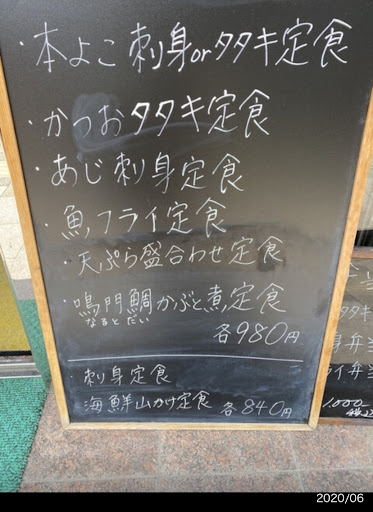 ・本よこ刺身orタタキ定食
・かつおタタキ定食
・あじ刺身定食
・魚フライ定食
・天ぷら盛合わせ定食
・鳴門鯛かぶと煮定食
なるとだい
各980円
・刺身定食
海鮮山かけ定食 各840円
弁当
1,000
2020/06